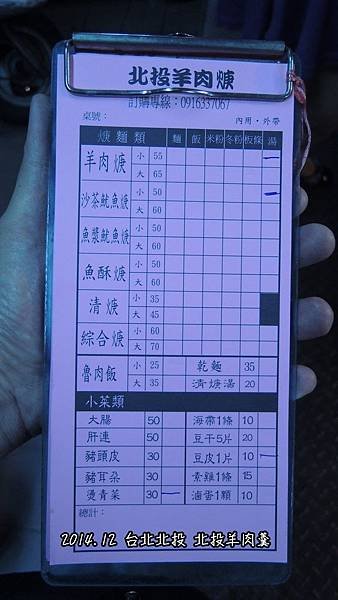 北投羊肉焿
訂購專線：0916337067
桌號：　內用・外帶
焿麵類　麵　飯　米粉　冬粉　板條　湯
羊肉焿　小　55
大　65
沙茶魷魚焿　小　50
大　60
魚漿魷魚焿　小　50
大　60
魚酥焿　小　50
大　60
清焿　小　35
大　45
綜合焿　小　60
大　70
魯肉飯　小　25　乾麵　35
大　35　清焿湯　20
小菜類
大腸　50　海帶1條　10
肝連　50　豆干5片　20
豬頭皮　30　豆皮1片　10
豬耳朵　30　素雞1條　15
燙青菜　30　滷蛋1顆　10
總計：
2014.12 台北北投 北投羊肉羹